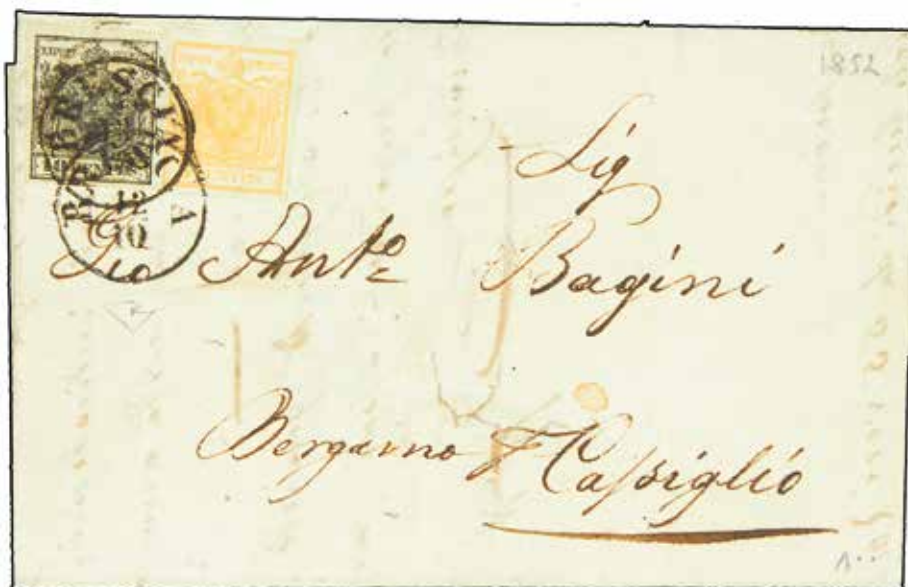 1852
BRESCIA
12
10
Sig
Gio Ant.o Bagini
Bergamo p Cassiglio